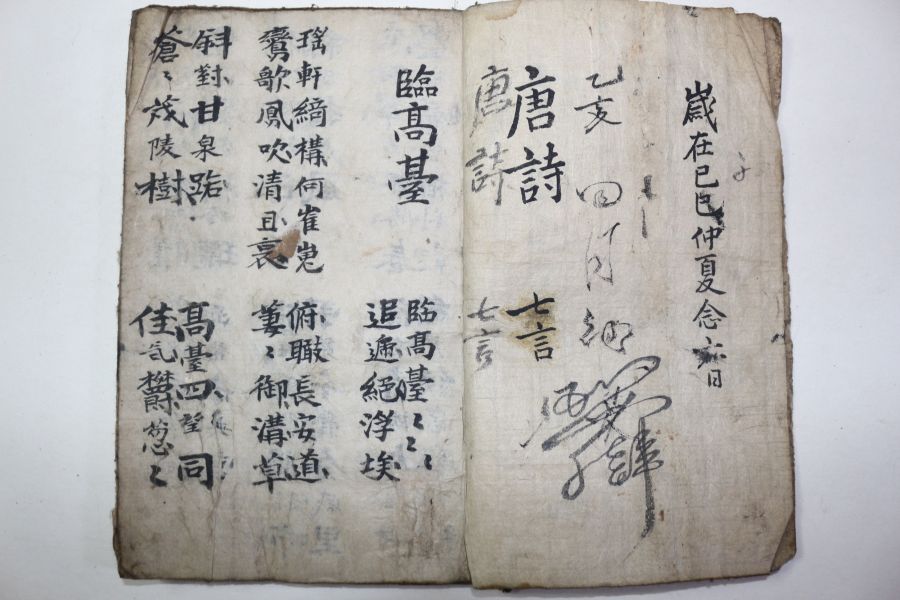 歲在己巳仲夏念六日
乙亥 四月
唐詩 七言
唐詩 七言
臨高臺
臨高臺〻〻〻
迢遞絕浮埃
瑤軒綺構何崔嵬
鸞歌鳳吹清且哀
俯瞰長安道
萋〻御溝草
斜對甘泉路
蒼〻茂陵樹
高臺四望同
佳气欝葱〻